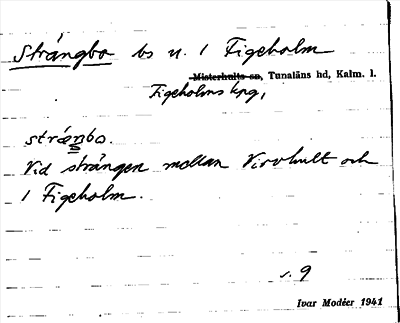 Strångbo bs u. 1 Figeholm
Misterhults sn, Tunaläns hd, Kalm. l.
Figeholms kpg,
strångbo.
Vid strången mellan Virvhult och
1 Figeholm.
s. 9
Ivar Modéer 1941